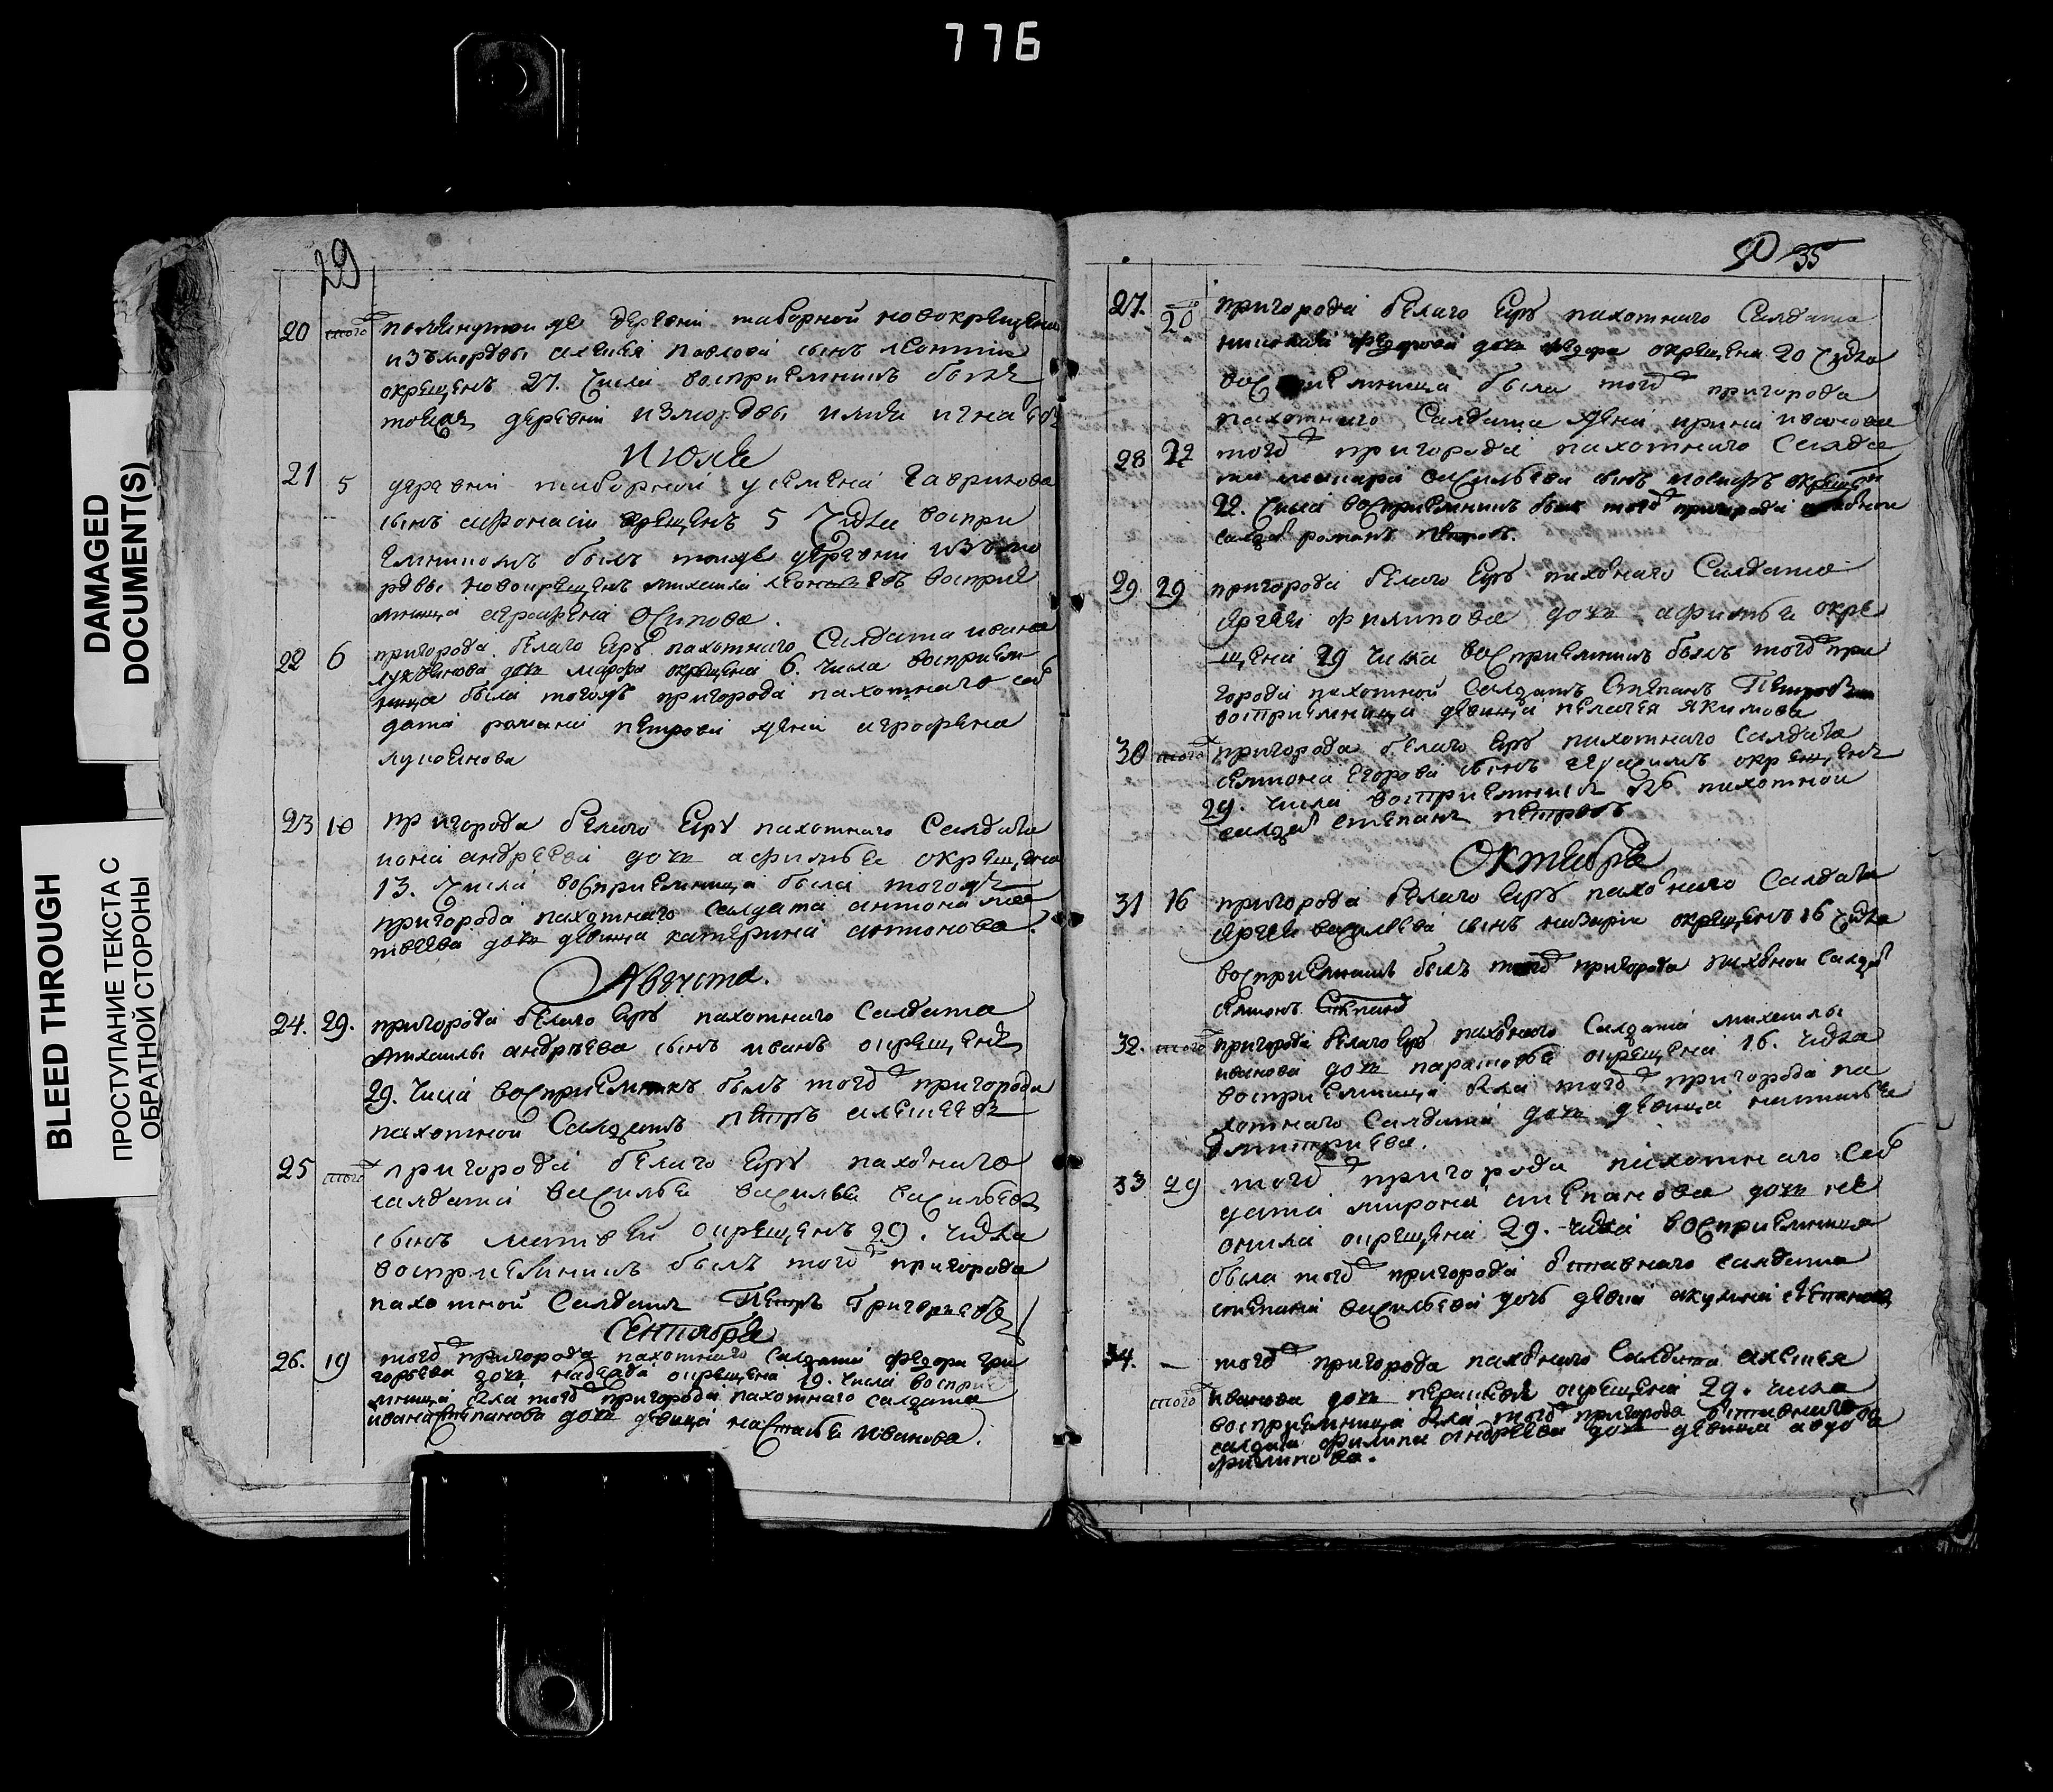 776
DAMAGED
DOCUMENT(S)
BLEED THROUGH
ПРОСТУПАНИЕ ТЕКСТА С
ОБРАТНОЙ СТОРОНЫ
29
20 того помянутои де деревни таборной новокрещена
изъ мордвы алексея павлова сынъ леонтии
окрещенъ 27. числа восприемникъ былъ
тоеже деревни измордвы илия игна
Июля
21 5 деревни таборной у семена гаврилова
сынъ афонасіи крещенъ 5 числа воспри
емникомъ былъ тоиде деревни изъ мо
рдвы новокрещенъ михаила восприе
мница агрофена осипова.
22 6 пригорода белаго еру пахотнаго салдата ивана
лукоянова дочь марфа окрещена 6. числа восприем
ница была тогожъ пригорода пахотнаго сал
дата романа петрова жена агрофена
лукоянова
23 10 пригорода белаго еру пахотнаго салдата
иона андреева дочь афимья окрещена
13. числа восприемница была тогожъ
пригорода пахотнаго салдата антона мат
твеева дочь девица катерина антонова.
Августа.
24. 29. пригорода белаго еру пахотнаго салдата
михаилы андреева сынъ иванъ окрещенъ
29. числа восприемникъ былъ того пригорода
пахотной салдатъ петръ алексеевъ
25 того пригорода белаго еру пахотнаго
салдата василья василья васильева
сынъ матвей окрещенъ 29. числа
восприемникъ былъ того пригорода
пахотной салдатъ петръ григорьевъ
Сентября
26. 19 того пригорода пахотнаго салдата федора гри
горьева дочь надежда окрещена 19. числа воспри
мница была того пригорода пахотнаго салдата
ивана степанова дочь девица настасья иванова.
35
27. 20 пригорода белаго еру пахотнаго салдата
николая федорова дочь федора окрещена 20 числа
восприемница была того пригорода
пахотнаго салдата жена ирина иванова
28 22 того пригорода пахотнаго салда
та макара васильева сынъ иосифъ окрещен
22. числа восприемникъ былъ того пригорода пахотной
салда романъ петровъ.
29 29 пригорода белаго еру пахотнаго салдата
сергея филипова дочь афимья окре
щена 29 числа восприемникъ былъ того при
города пахотной салдатъ степанъ петровъ
восприемница девица пелагея якимова
30 того пригорода белаго еру пахотнаго салдата
семиона егорова сынъ герасимъ окрещенъ
29. числа восприемникъ пахотной
салда степанъ петровъ
Октября
31 16 пригорода белаго еру пахотнаго салдата
сергея васильева сынъ назарїи окрещенъ 16 числа
восприемникъ былъ того пригорода пахотной салда
семионъ степанов
32. того пригорода белаго еру пахотнаго салдата михаилы
иванова дочь параскова окрещена 16. числа
восприемница была того пригорода па
хотнаго салдата дочь девица наталья
дмитриева.
33 29 того пригорода пахотнаго сал
дата мирона степанова дочь не
онила окрещена 29. числа восприемница
была того пригорода отставнаго салдата
степана васильева дочь девица акулина степанова
34. — того пригорода пахотнаго салдата алексея
того иванова дочь окрещена 29. числа
восприемница была того пригорода отставнаго
салдата филипа андреева дочь девица авдотя
филипова.